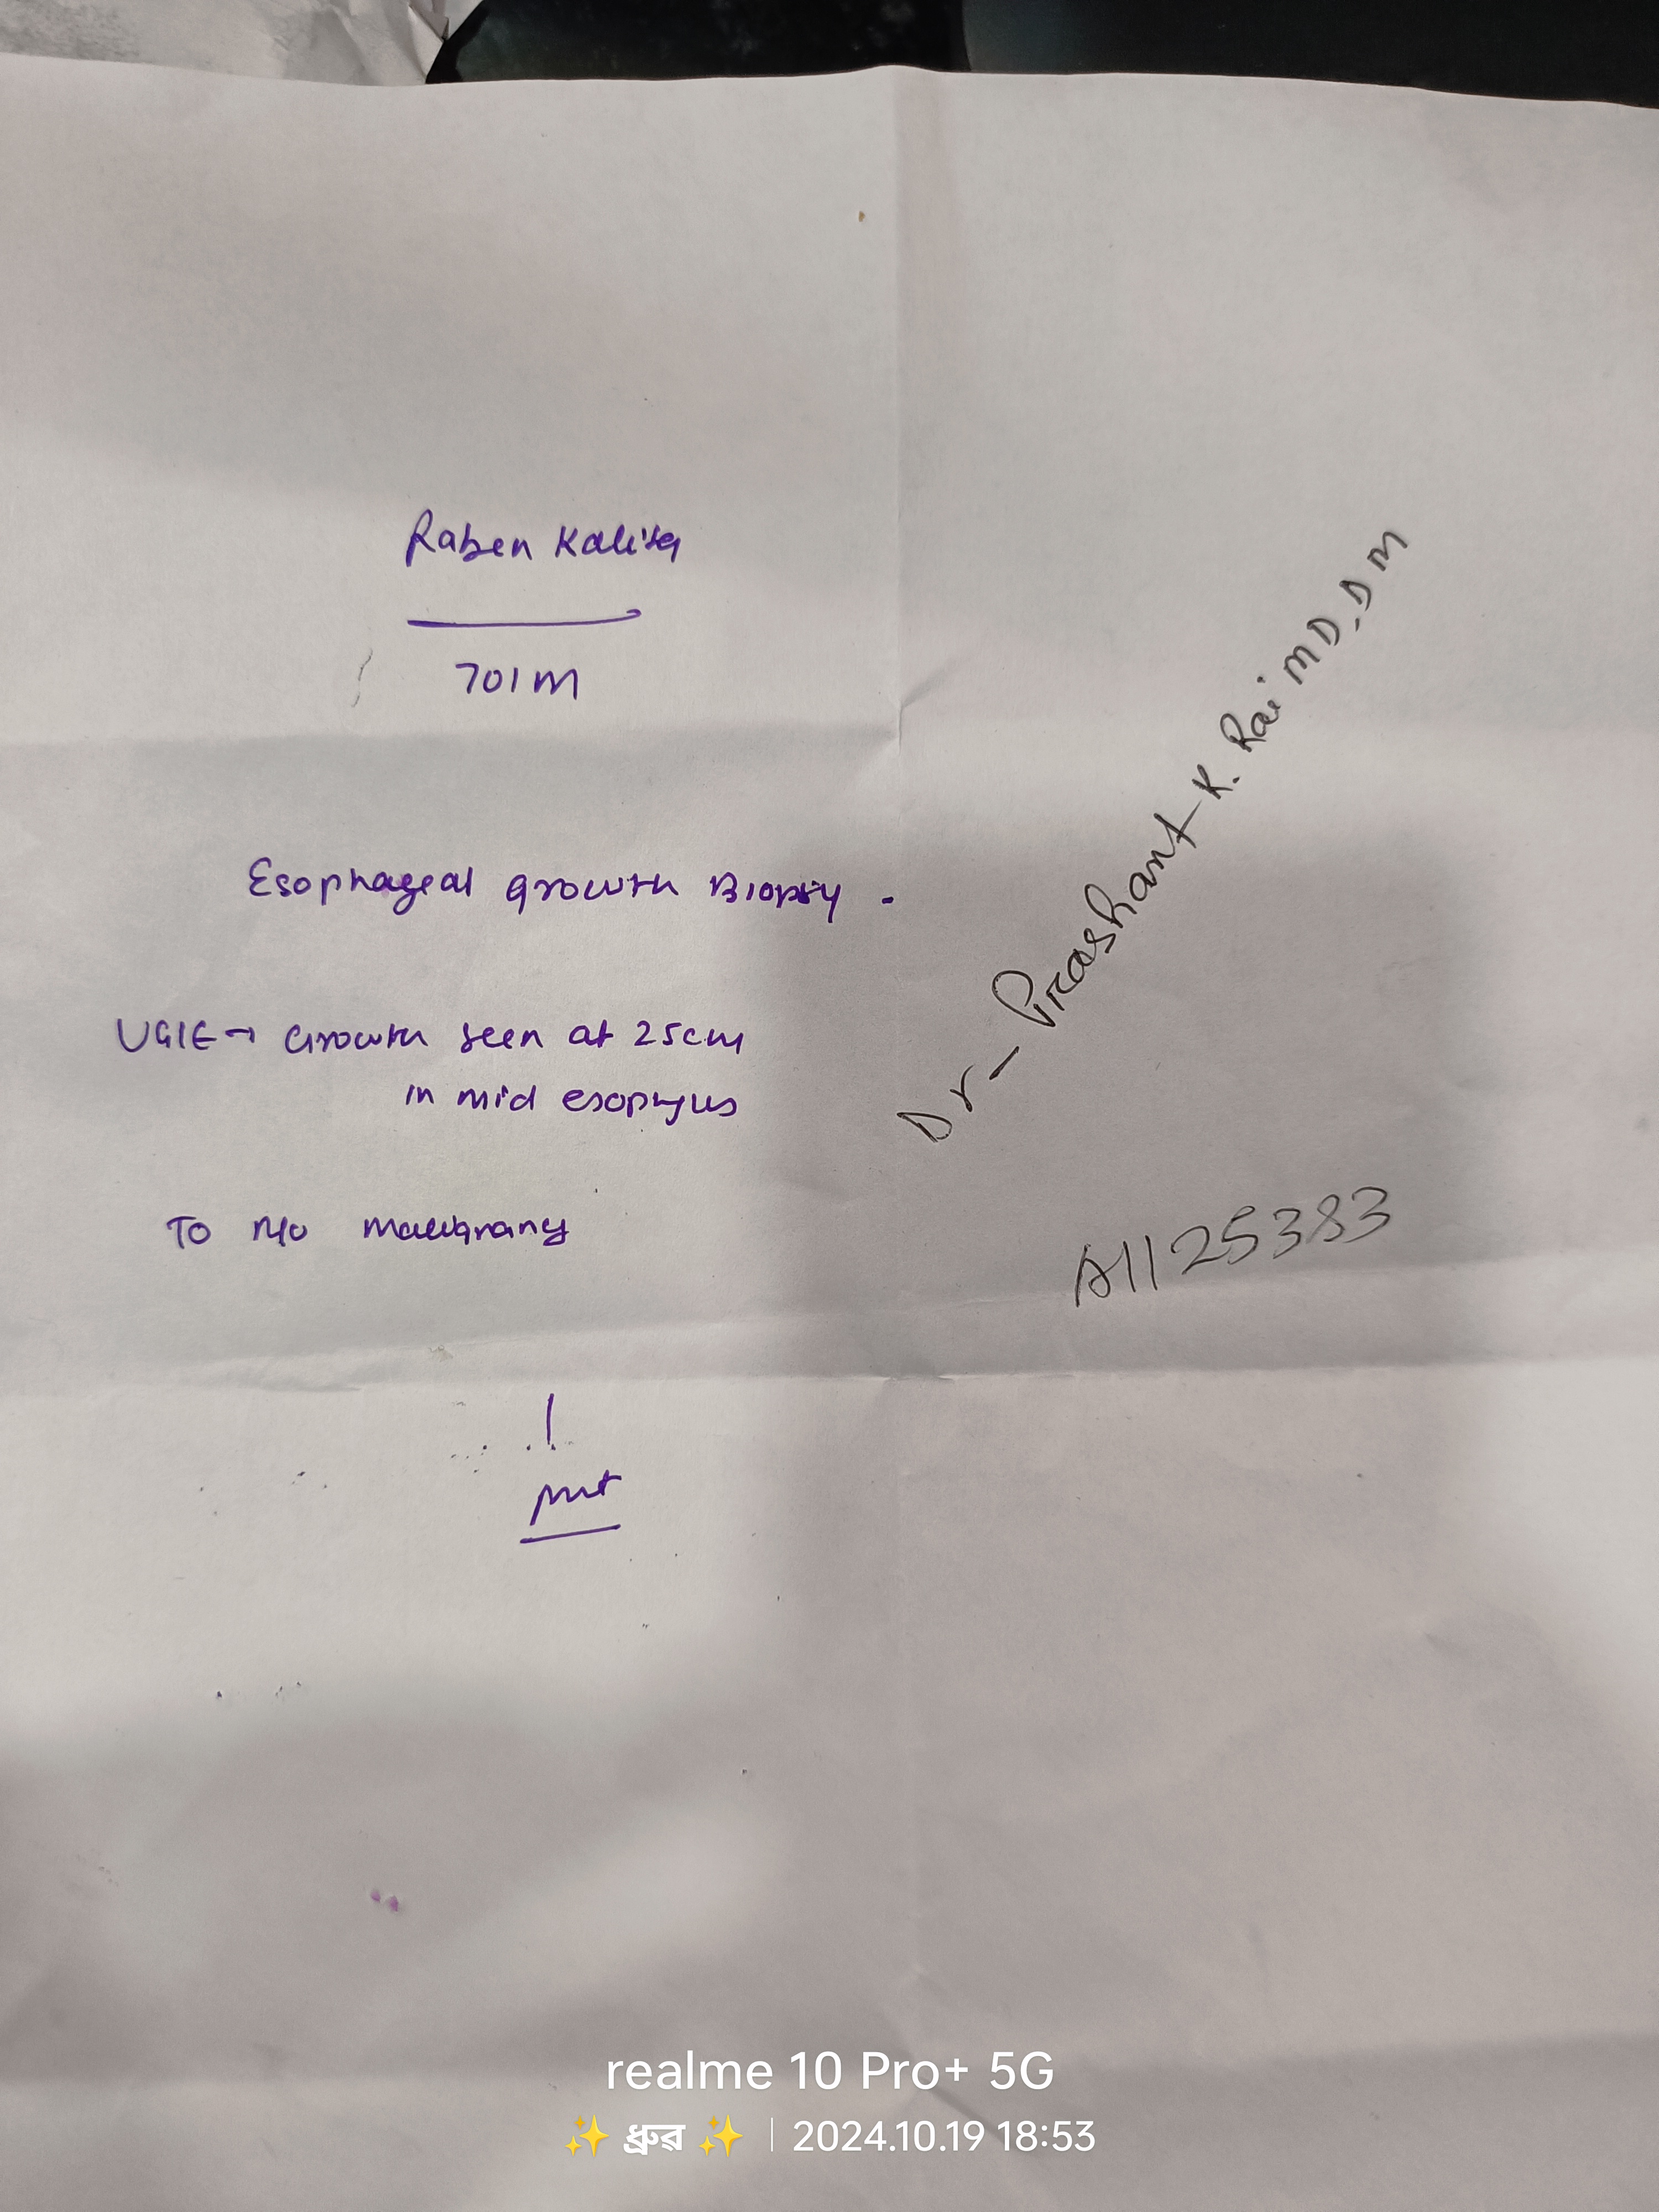 Raben Kalita
70/M
Esophageal growth Biopsy.
UGIE → Growth seen at 25cm
in mid esophgus
To R/o malignany
Dr- Prashant K. Rai MD, DM
A1125383
realme 10 Pro+ 5G
✨ ধ্ৰুৱ ✨ | 2024.10.19 18:53